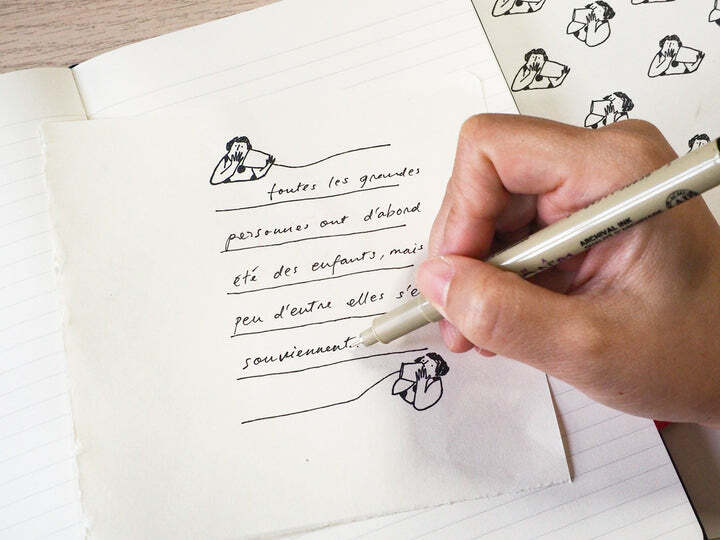 toutes les grandes
personnes ont d'abord
été des enfants, mais
peu d'entre elles s'e
souviennent.
ARCHIVAL INK